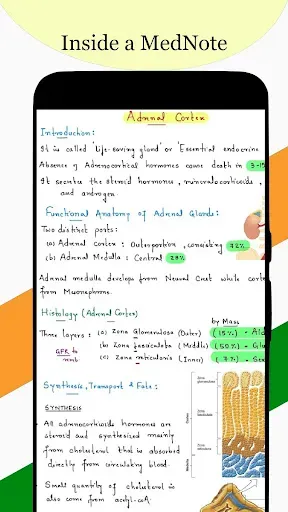 Inside a MedNote
Adrenal Cortex
Introduction:
It is called 'life-saving gland' or 'Essential endocrine
Absence of Adrenocortical hormones cause death in 3-15
It secretes the steroid hormones, mineralocorticoids,
and androgen.
Functional Anatomy of Adrenal Glands:
Two distinct parts:
(a) Adrenal cortex: Outer portion, consisting 72%
(b) Adrenal Medulla: Central 28%
Adrenal medulla develops from Neural Crest while corte
from Mesonephrons.
Histology (Adrenal Cortex)
by Mass
Three layers: (a) Zona Glomerulosa (Outer) (15%) - Ald
GFR to remb. (b) Zona fasciculata (Middle) (50%) - Glu
(c) Zona reticularis (Inner) (7%) - Sex
Synthesis, Transport & Fate:
SYNTHESIS
All adrenocorticoids hormones are
steroid and synthesized mainly
from cholesterol that is absorbed
directly from circulating blood.
Small quantity of cholesterol is
also come from acetyl-coA.
Cortex
Medulla